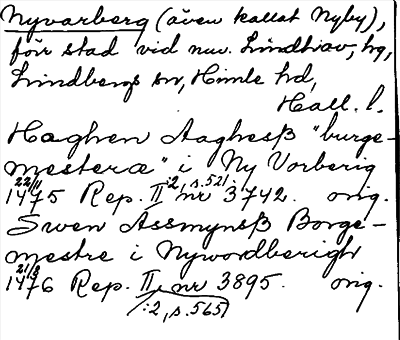 Nyvarberg (även kallat Nyby),
förr stad vid nuv. Lindhov, hg,
Lindbergs sn, Himle hd,
Hall. l.
Haghen Aaghesß "burge-
mesteræ" i Ny Vorberig
22/11 1475 Rep. II :2, s. 521. nr 3742. orig.
Swen Assmynsß Borge-
mestre i Nywordberigh
21/8 1476 Rep. II, nr 3895. orig.
:2, s. 565)